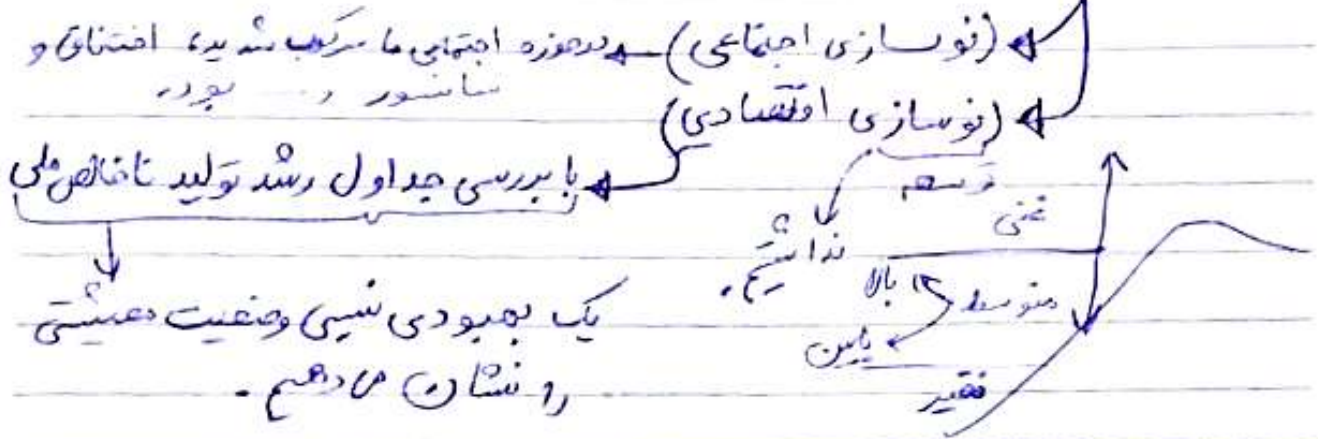 (نوسازی اجتماعی) ← در حوزه اجتماعی ما سرکوب شدید، اختناق و
سانسور و ... بود.
(نوسازی اقتصادی)
با بررسی جداول رشد تولید ناخالص ملی
توسعه
نداشتیم.
یک بهبودی نسبی وضعیت معیشتی
را نشان می‌دهیم.
غنی
متوسط
بالا
پایین
فقیر